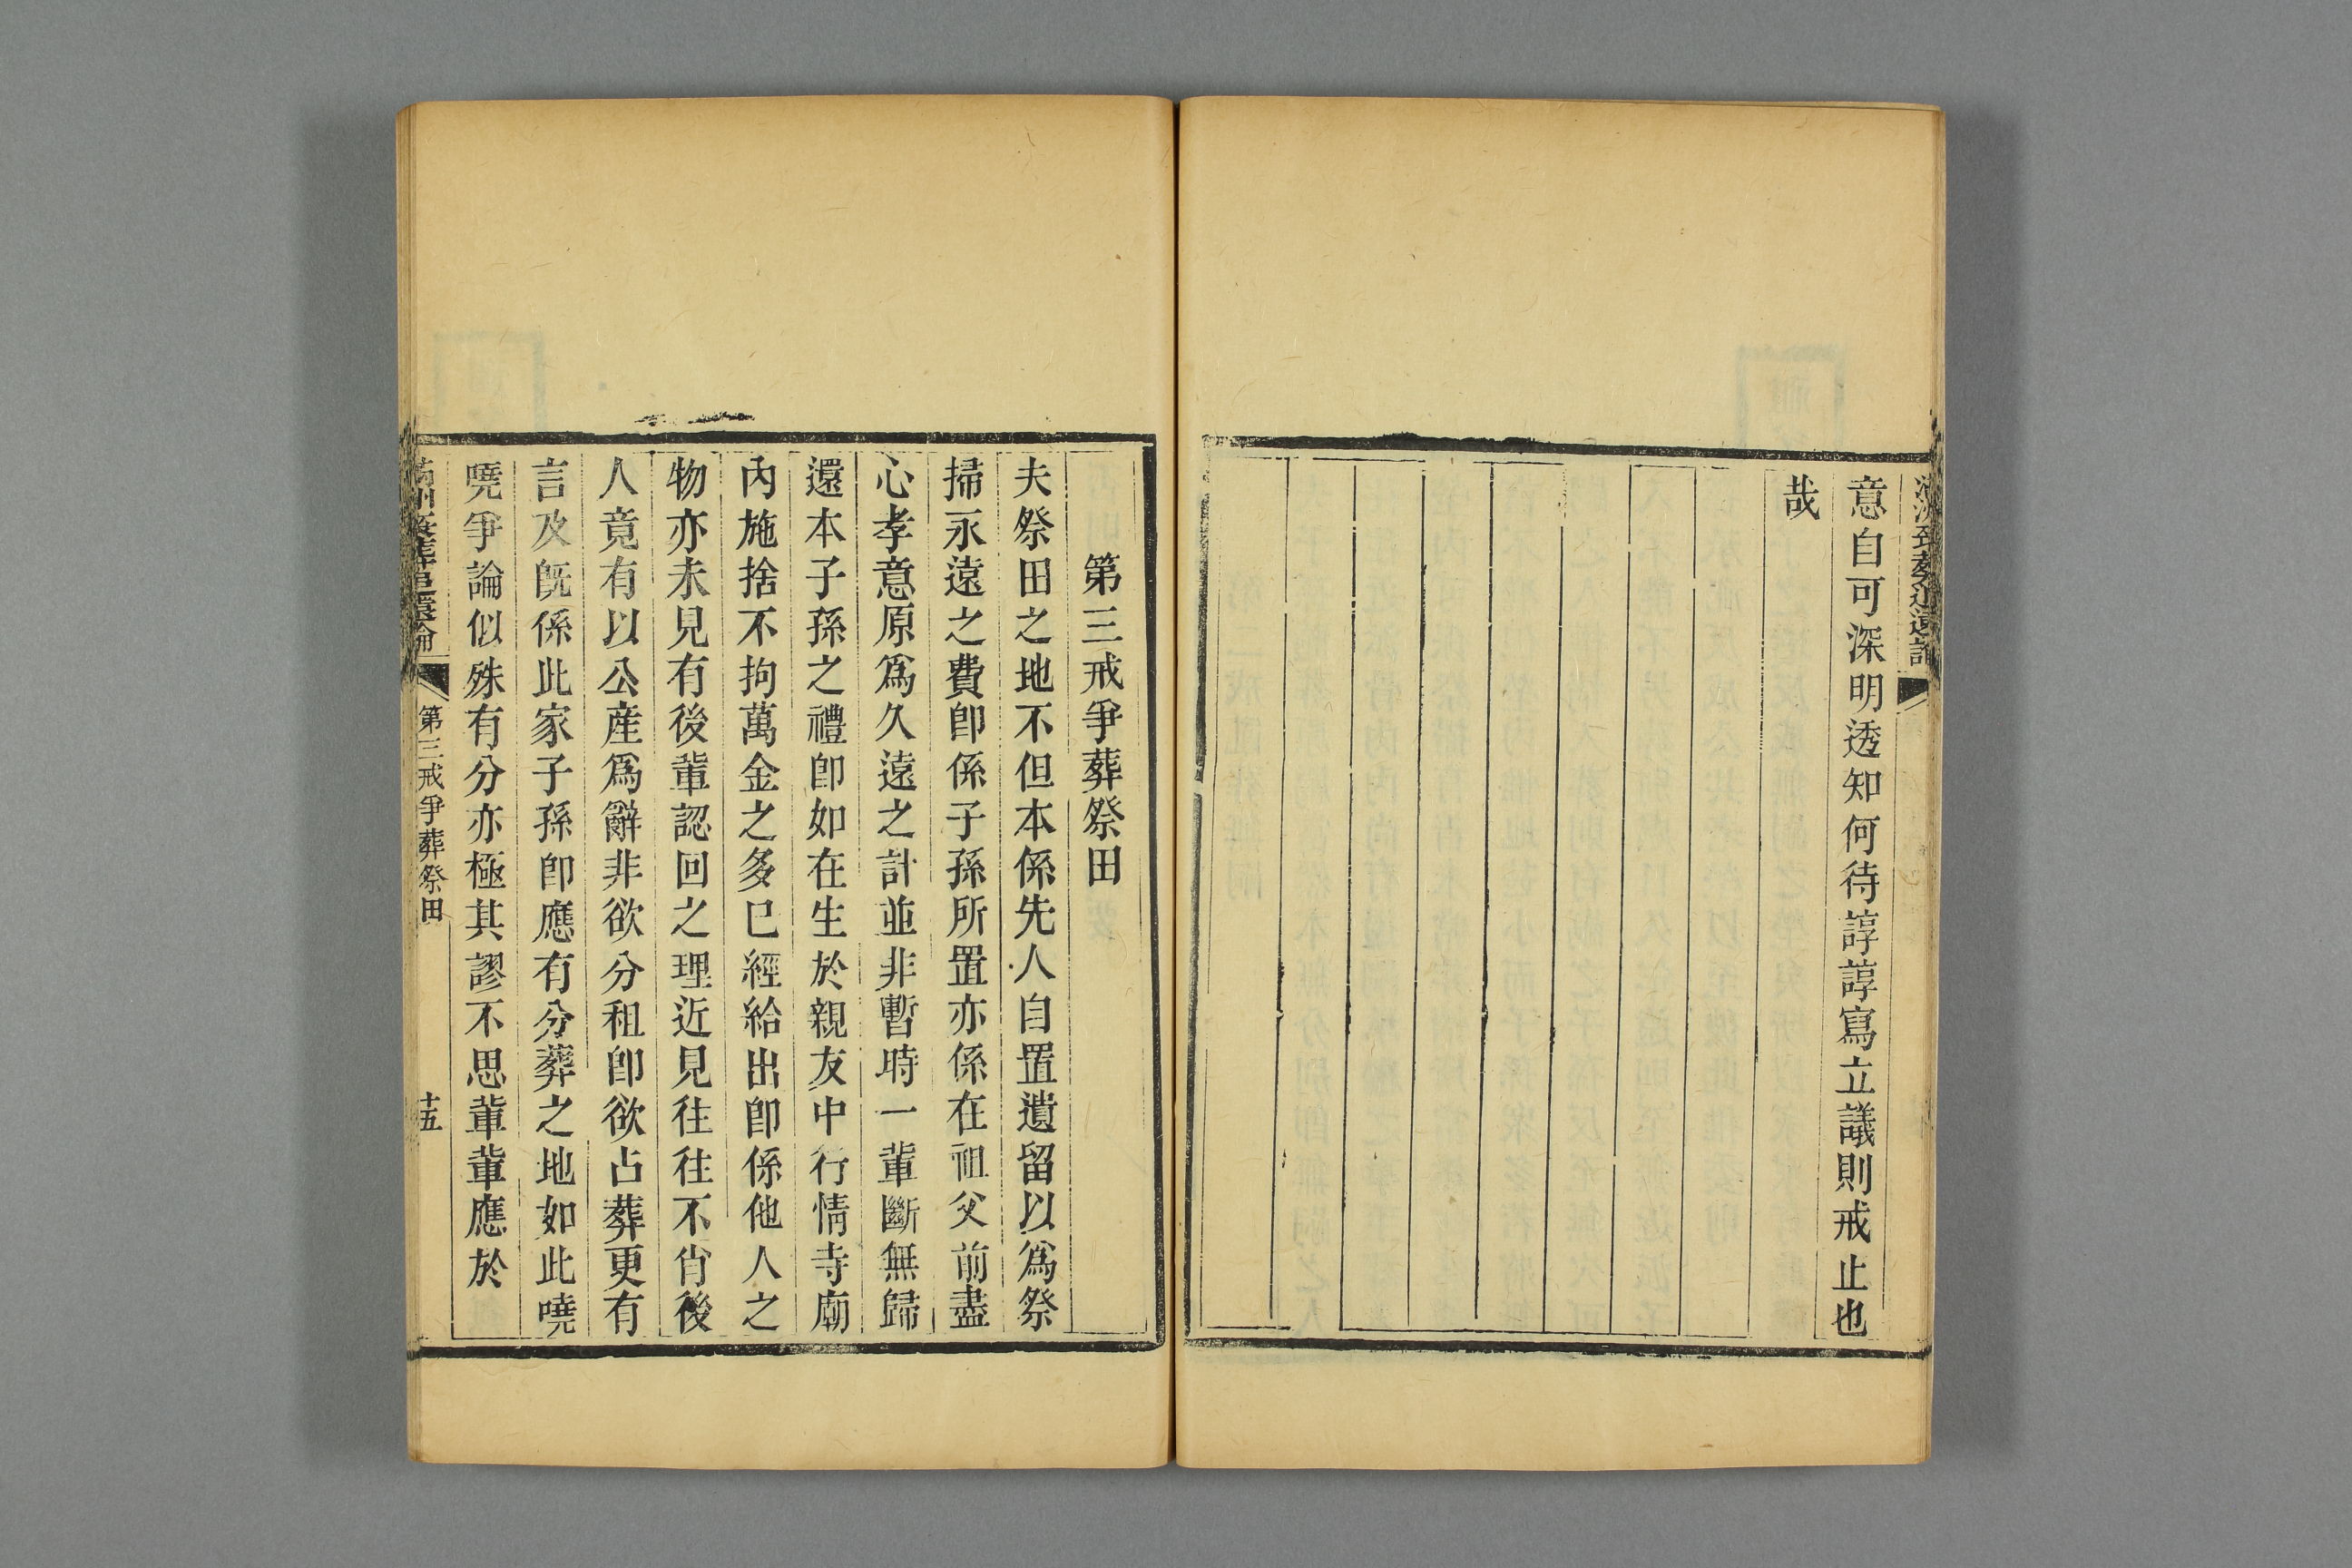 意自可深明透知何待諄諄寫立議則戒止也
哉
第三戒爭葬祭田
夫祭田之地不但本係先人自置遺留以爲祭
掃永遠之費卽係子孫所置亦係在祖父前盡
心孝意原爲久遠之計並非暫時一輩斷無歸
還本子孫之禮卽如在生於親友中行情寺廟
內施捨不拘萬金之多已經給出卽係他人之
物亦未見有後輩認回之理近見往往不肖後
人竟有以公產爲辭非欲分租卽欲占葬更有
言及旣係此家子孫卽應有分葬之地如此嘵
嘵爭論似殊有分亦極其謬不思輩輩應於
第三戒爭葬祭田
十五